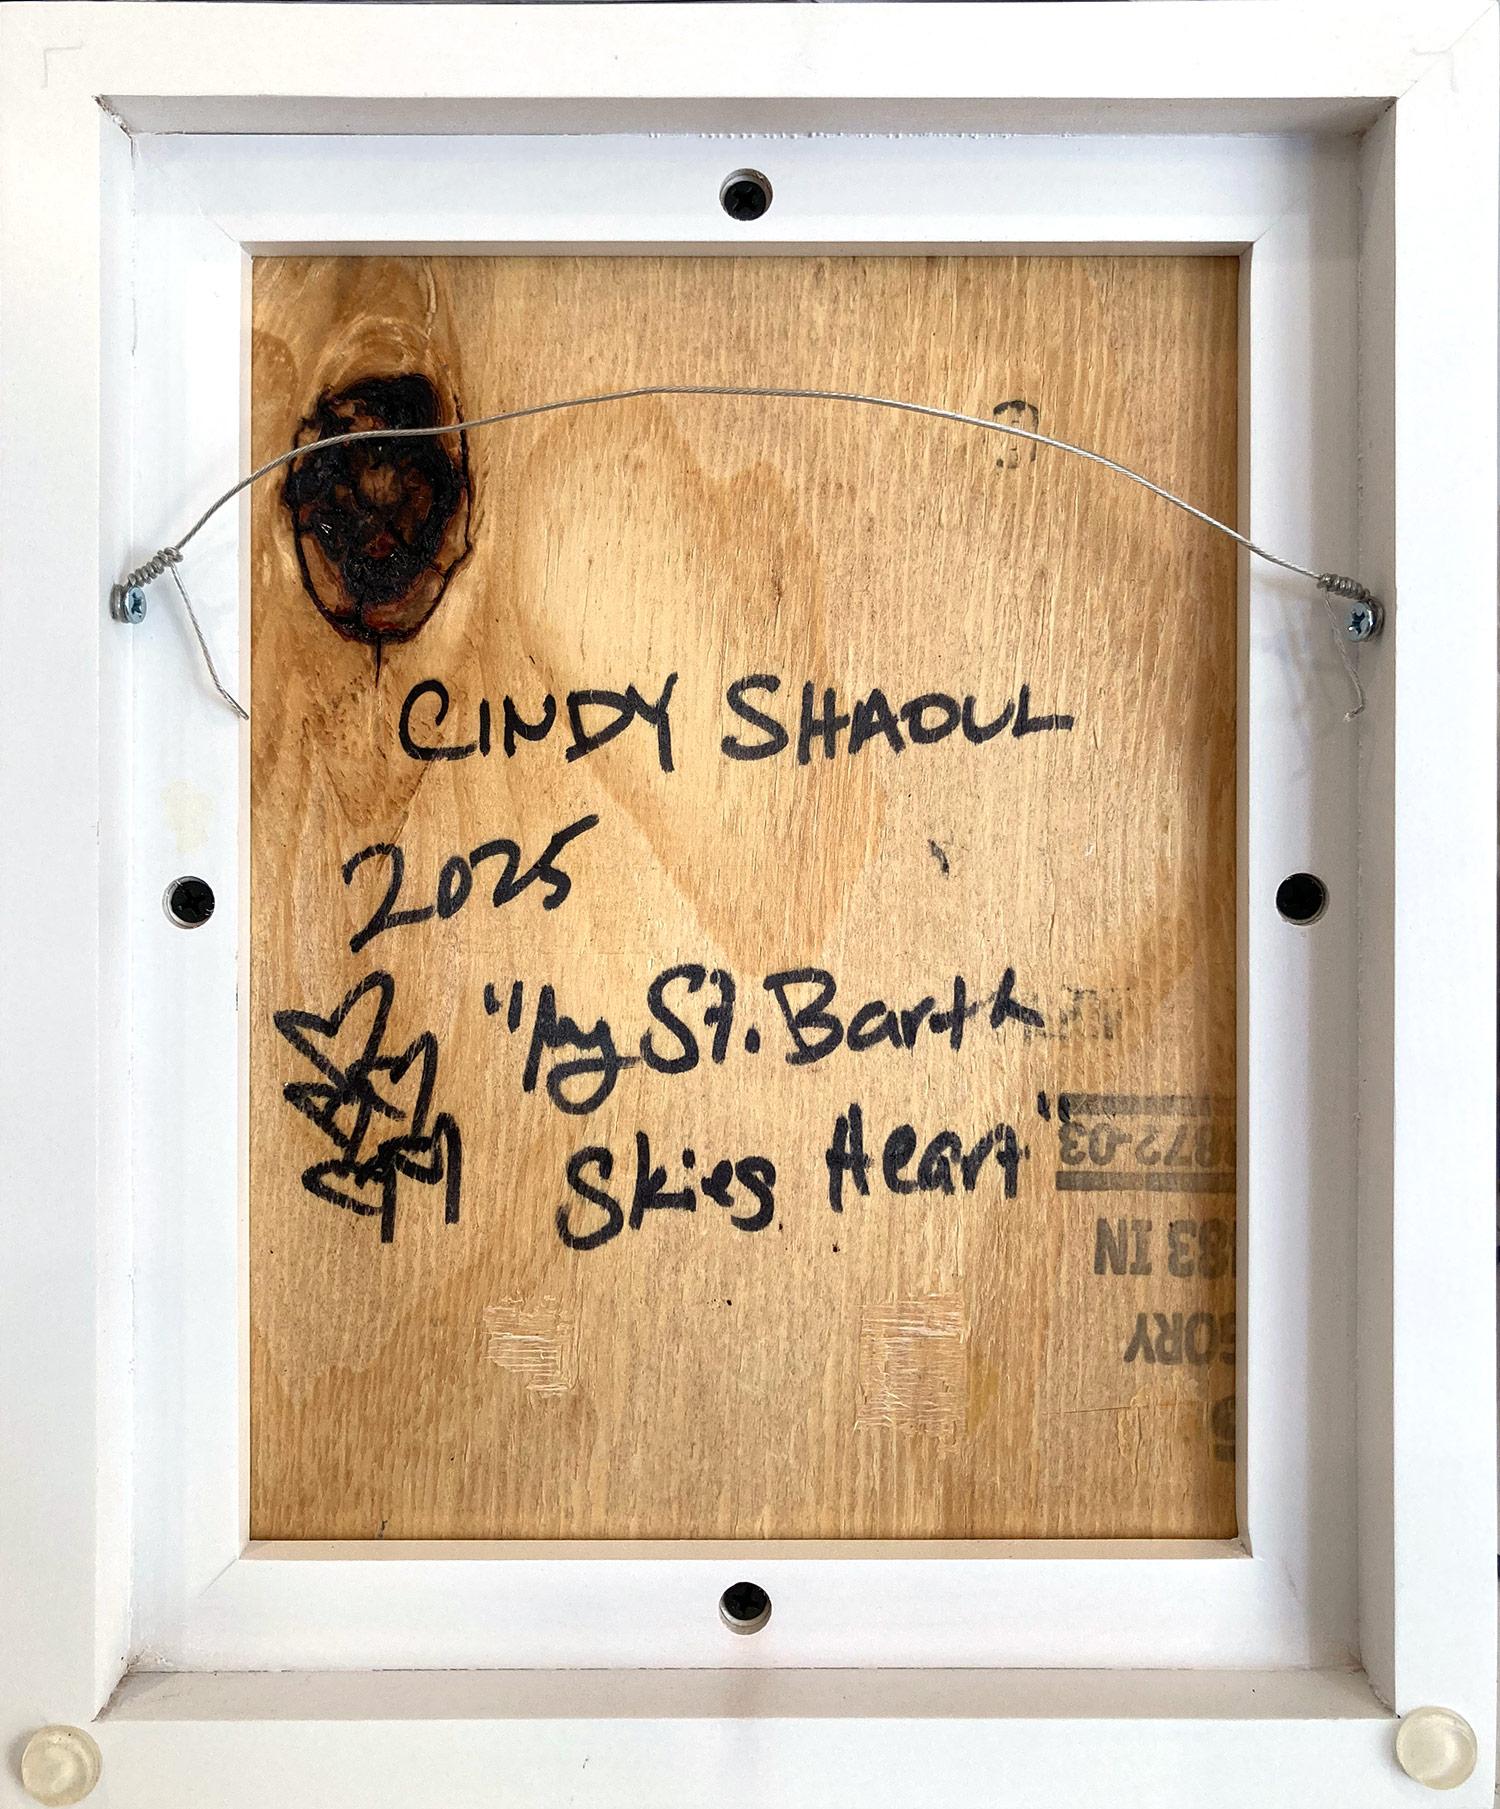 CINDY SHAOUL
2025
"My St. Barth
Skies Heart"
872-03
33 IN
GORY